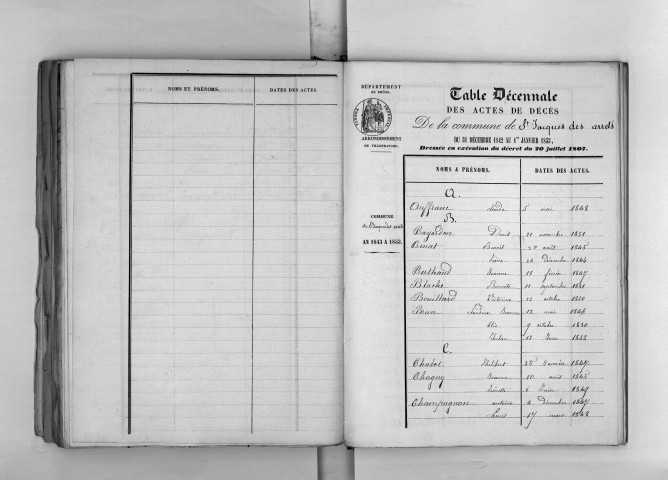 NOMS ET PRÉNOMS. DATES DES ACTES.
DÉPARTEMENT
DU RHÔNE.
ARRONDISSEMENT
DE VILLEFRANCHE.
COMMUNE
AN 1843 A 1853.
Table Décennale
DES ACTES DE DÉCÈS
De la commune de St Jacques des arrêts
DU 31 DÉCEMBRE 1842 AU 1er JANVIER 1853,
Dressée en exécution du décret du 20 juillet 1807.
NOMS & PRÉNOMS. DATES DES ACTES.
A.
Auffranc 5 mai 1848
B.
Bagardon Denis 21 novembre 1851
Benat Benoît 20 août 1845
26 décembre 1844
Berthaud Jeanne 18 février 1847
Blache 11 septembre 1851
Bouillard 22 octobre 1850
Brun 13 mai 1846
9 octobre 1850
12 1852
C.
Chabot Philibert 25 janvier 1847
Chagny Jeanne 10 août 1845
6 juin 1849
Champagnon antoine 4 décembre 1847
Louis 17 mars 1848